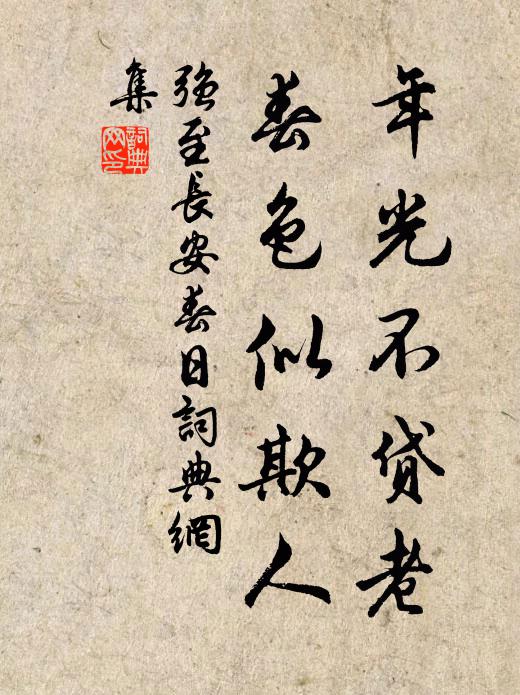 年光不貸老
春色似欺人
強至長安春日詞典網
集
詞典
网印